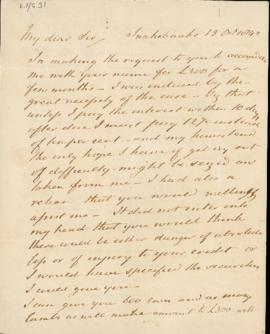 My dear Sir, Snakebanks 13 Oct 1842
In making the request to you to accomodate
me with your name for £300 for a
few months - I was induced by the
great necessity of the case - by that
unless I pay the interest within 10 days
after due I must pay 12 p instead
of ten per cent - and my house and
the only hope I have of getting out
of difficulty might be seized and
taken from me - I had also a
that you would
assist me - It did not enter into
my head that you would think
there would be either danger of absolute
loss or of injury to your credit or
I would have specified the securities
I could give you -
I can give you 800 ewes and as many
lambs as will make amount to £300 with